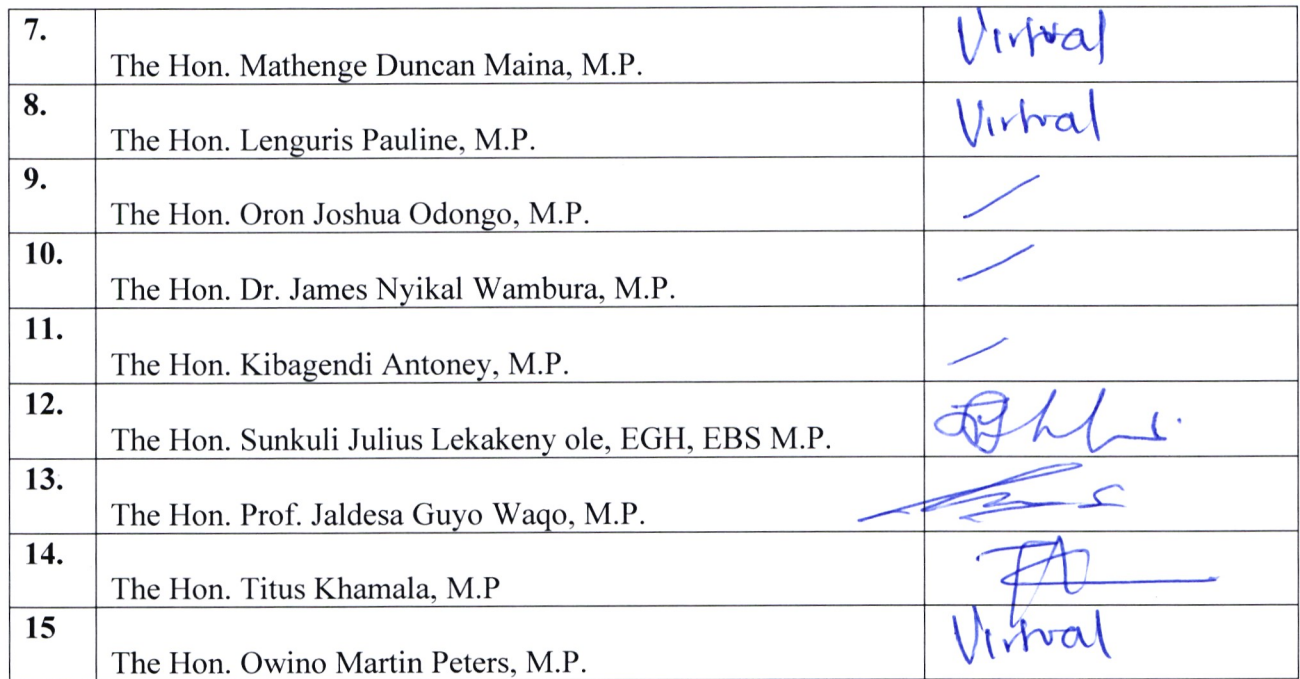 7.
The Hon. Mathenge Duncan Maina, M.P. Virtual
8.
The Hon. Lenguris Pauline, M.P. Virtual
9.
The Hon. Oron Joshua Odongo, M.P.
10.
The Hon. Dr. James Nyikal Wambura, M.P.
11.
The Hon. Kibagendi Antoney, M.P.
12.
The Hon. Sunkuli Julius Lekakeny ole, EGH, EBS M.P.
13.
The Hon. Prof. Jaldesa Guyo Waqo, M.P.
14.
The Hon. Titus Khamala, M.P
15
The Hon. Owino Martin Peters, M.P. Virtual